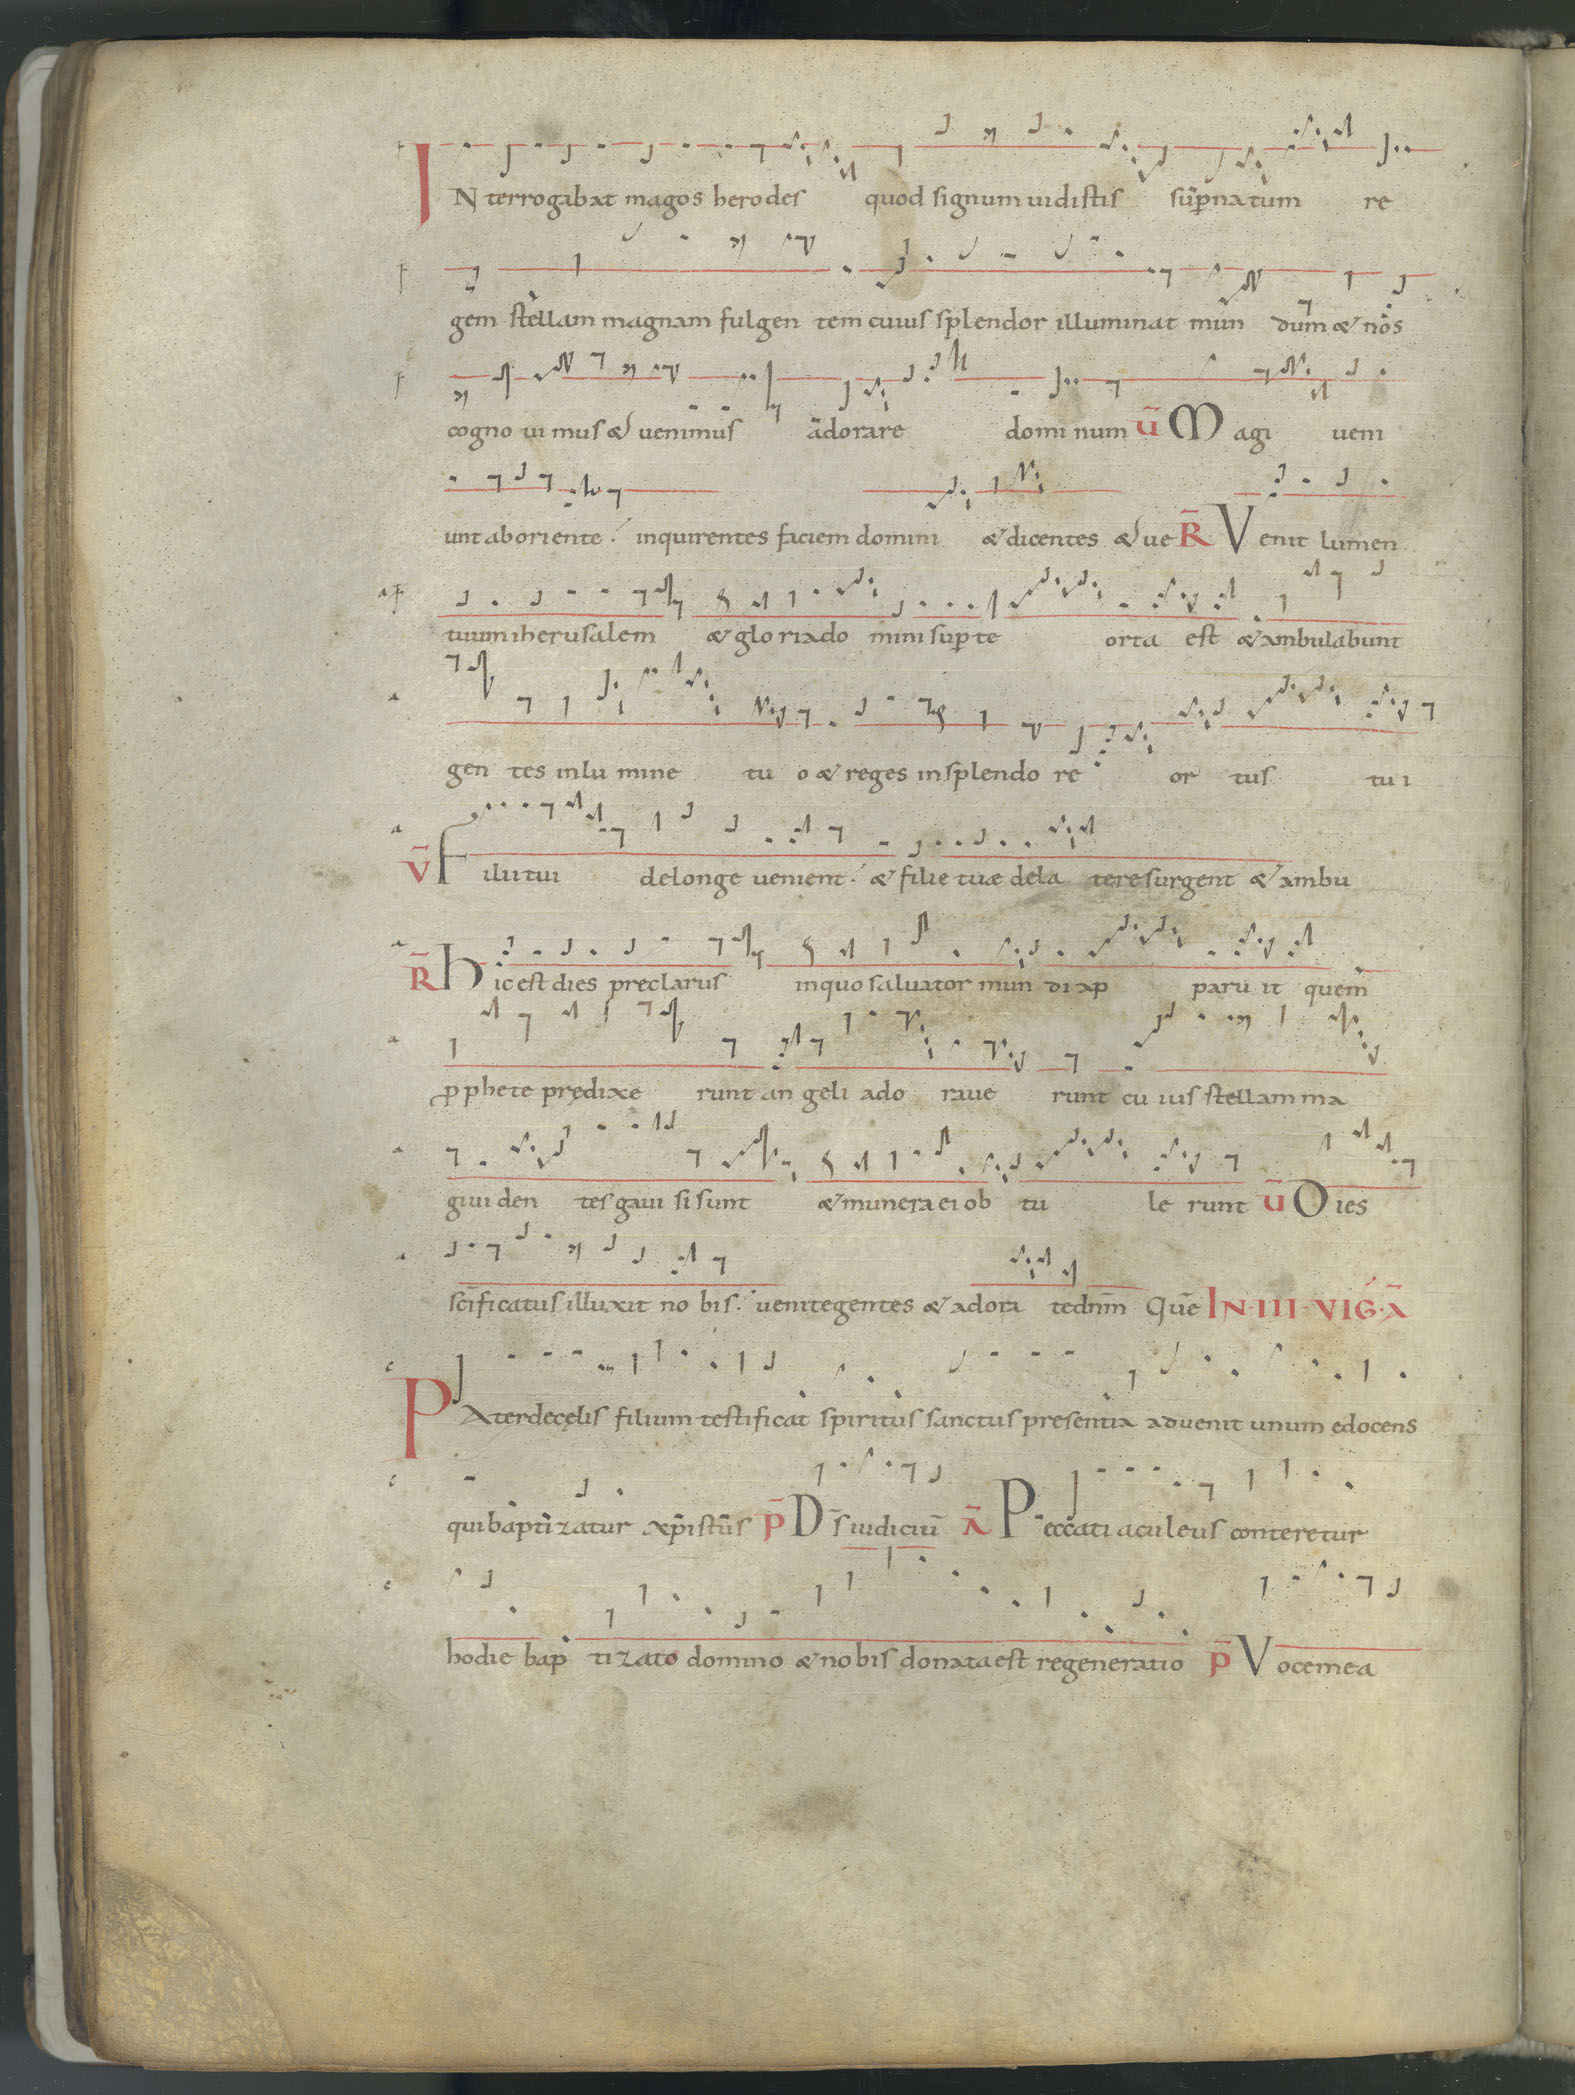 IN terrogabat magos herodes quod signum uidistis sup̄ natum re
gem stellam magnam fulgen tem cuius splendor illuminat mun dum & nos
cogno ui mus & uenimus adorare domi num V̄ Magi ueni
unt ab oriente inquirentes faciem domini & dicentes & ue R̄ Venit lumen
tuum iherusalem & glo ria do mini sup̄ te orta est & ambulabunt
gen tes in lu mine tu o & reges in splendo re or tus tu i
V̄ Filii tui de longe uenient & filie tuæ de la tere surgent & ambu
R̄ Hic est dies preclarus in quo saluator mun di ap paru it quem
p phete prędixe runt an geli ado raue runt cu ius stellam ma
gi ui den tes gaui si sunt & munera ei ob tu le runt V̄ Dies
sc̄ificatus illuxit no bis uenite gentes & adora te dn̄m Quē IN III VIG Ā
Pater de cęlis filium testificat spiritus sanctus presentia aduenit unum edocens
qui baptizatur xp̄istus P̄ D̄s iudiciū Ā Peccati aculeus conteretur
hodie bap tizato domino & nobis donata est regeneratio P̄ Voce mea